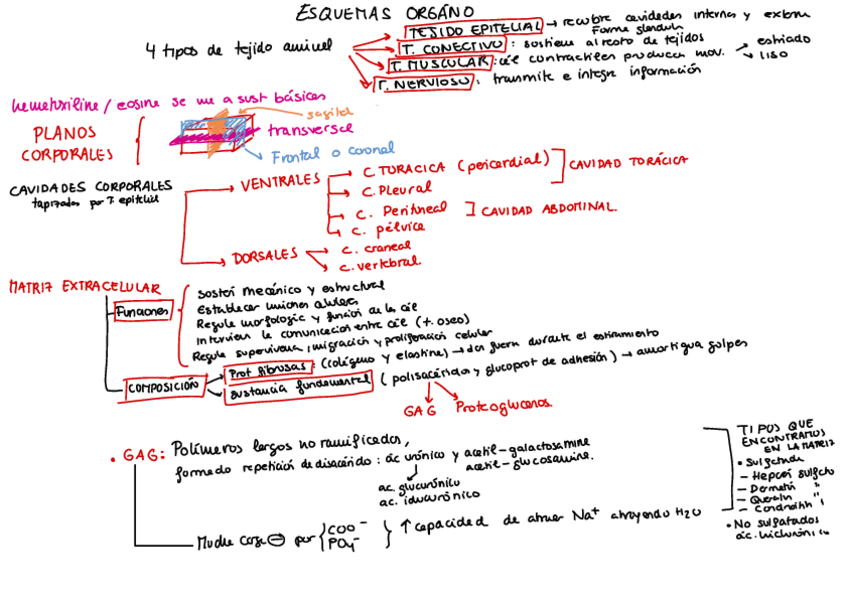 ESQUEMAS ORGÁNO
4 tipos de tejido animal
TEJIDO EPITELIAL → recubre cavidades internas y externa
Forma glandula
T. CONECTIVO: sostiene al resto de tejidos
T. MUSCULAR: cie contractiles producen mov. → estriado
→ liso
T. NERVIOSO: transmite e integra información
hematoxilina / eosina se une a sust básicas
PLANOS
CORPORALES
sagital
transversal
Frontal o coronal
CAVIDADES CORPORALES
tapizadas por T. epitelial
VENTRALES
C. TORACICA (pericardial)
C. Pleural
CAVIDAD TORÁCICA
C. Peritneal
C. pélvica
CAVIDAD ABDOMINAL
DORSALES
C. craneal
C. vertebral.
MATRIZ EXTRACELULAR
Funciones
Sostén mecánico y estructural
Establecer uniones
Regula morfologia y función de la cie
Interviene la comunicación entre cie (t. oseo)
Regula supervivencia, migración y proliferación celular
COMPOSICIÓN
Prot fibrosas: (colágeno y elastina) → dan fuerza durante el estiramiento
sustancia fundamental (polisacáridos y glucoprot de adhesión) → amortigua golpes
GAG Proteoglucanos.
• GAG: Polímeros largos no ramificados,
formado repetición de disacárido: ác urónico y acetil-galactosamine
acetil-glucosamine.
ac. glucurónico
ac. idurónico
Mucha carga ⊖ por { COO⁻
PO₄⁻ } ↑ capacidad de atraer Na⁺ atrayendo H2O
TIPOS QUE
ENCONTRAMOS
EN LA MATRIZ
• Sulfatada
– Heparán sulfato
– Dermatán "
– Queratán "
– Condroitín "
• No sulfatados
ác. hialurónico